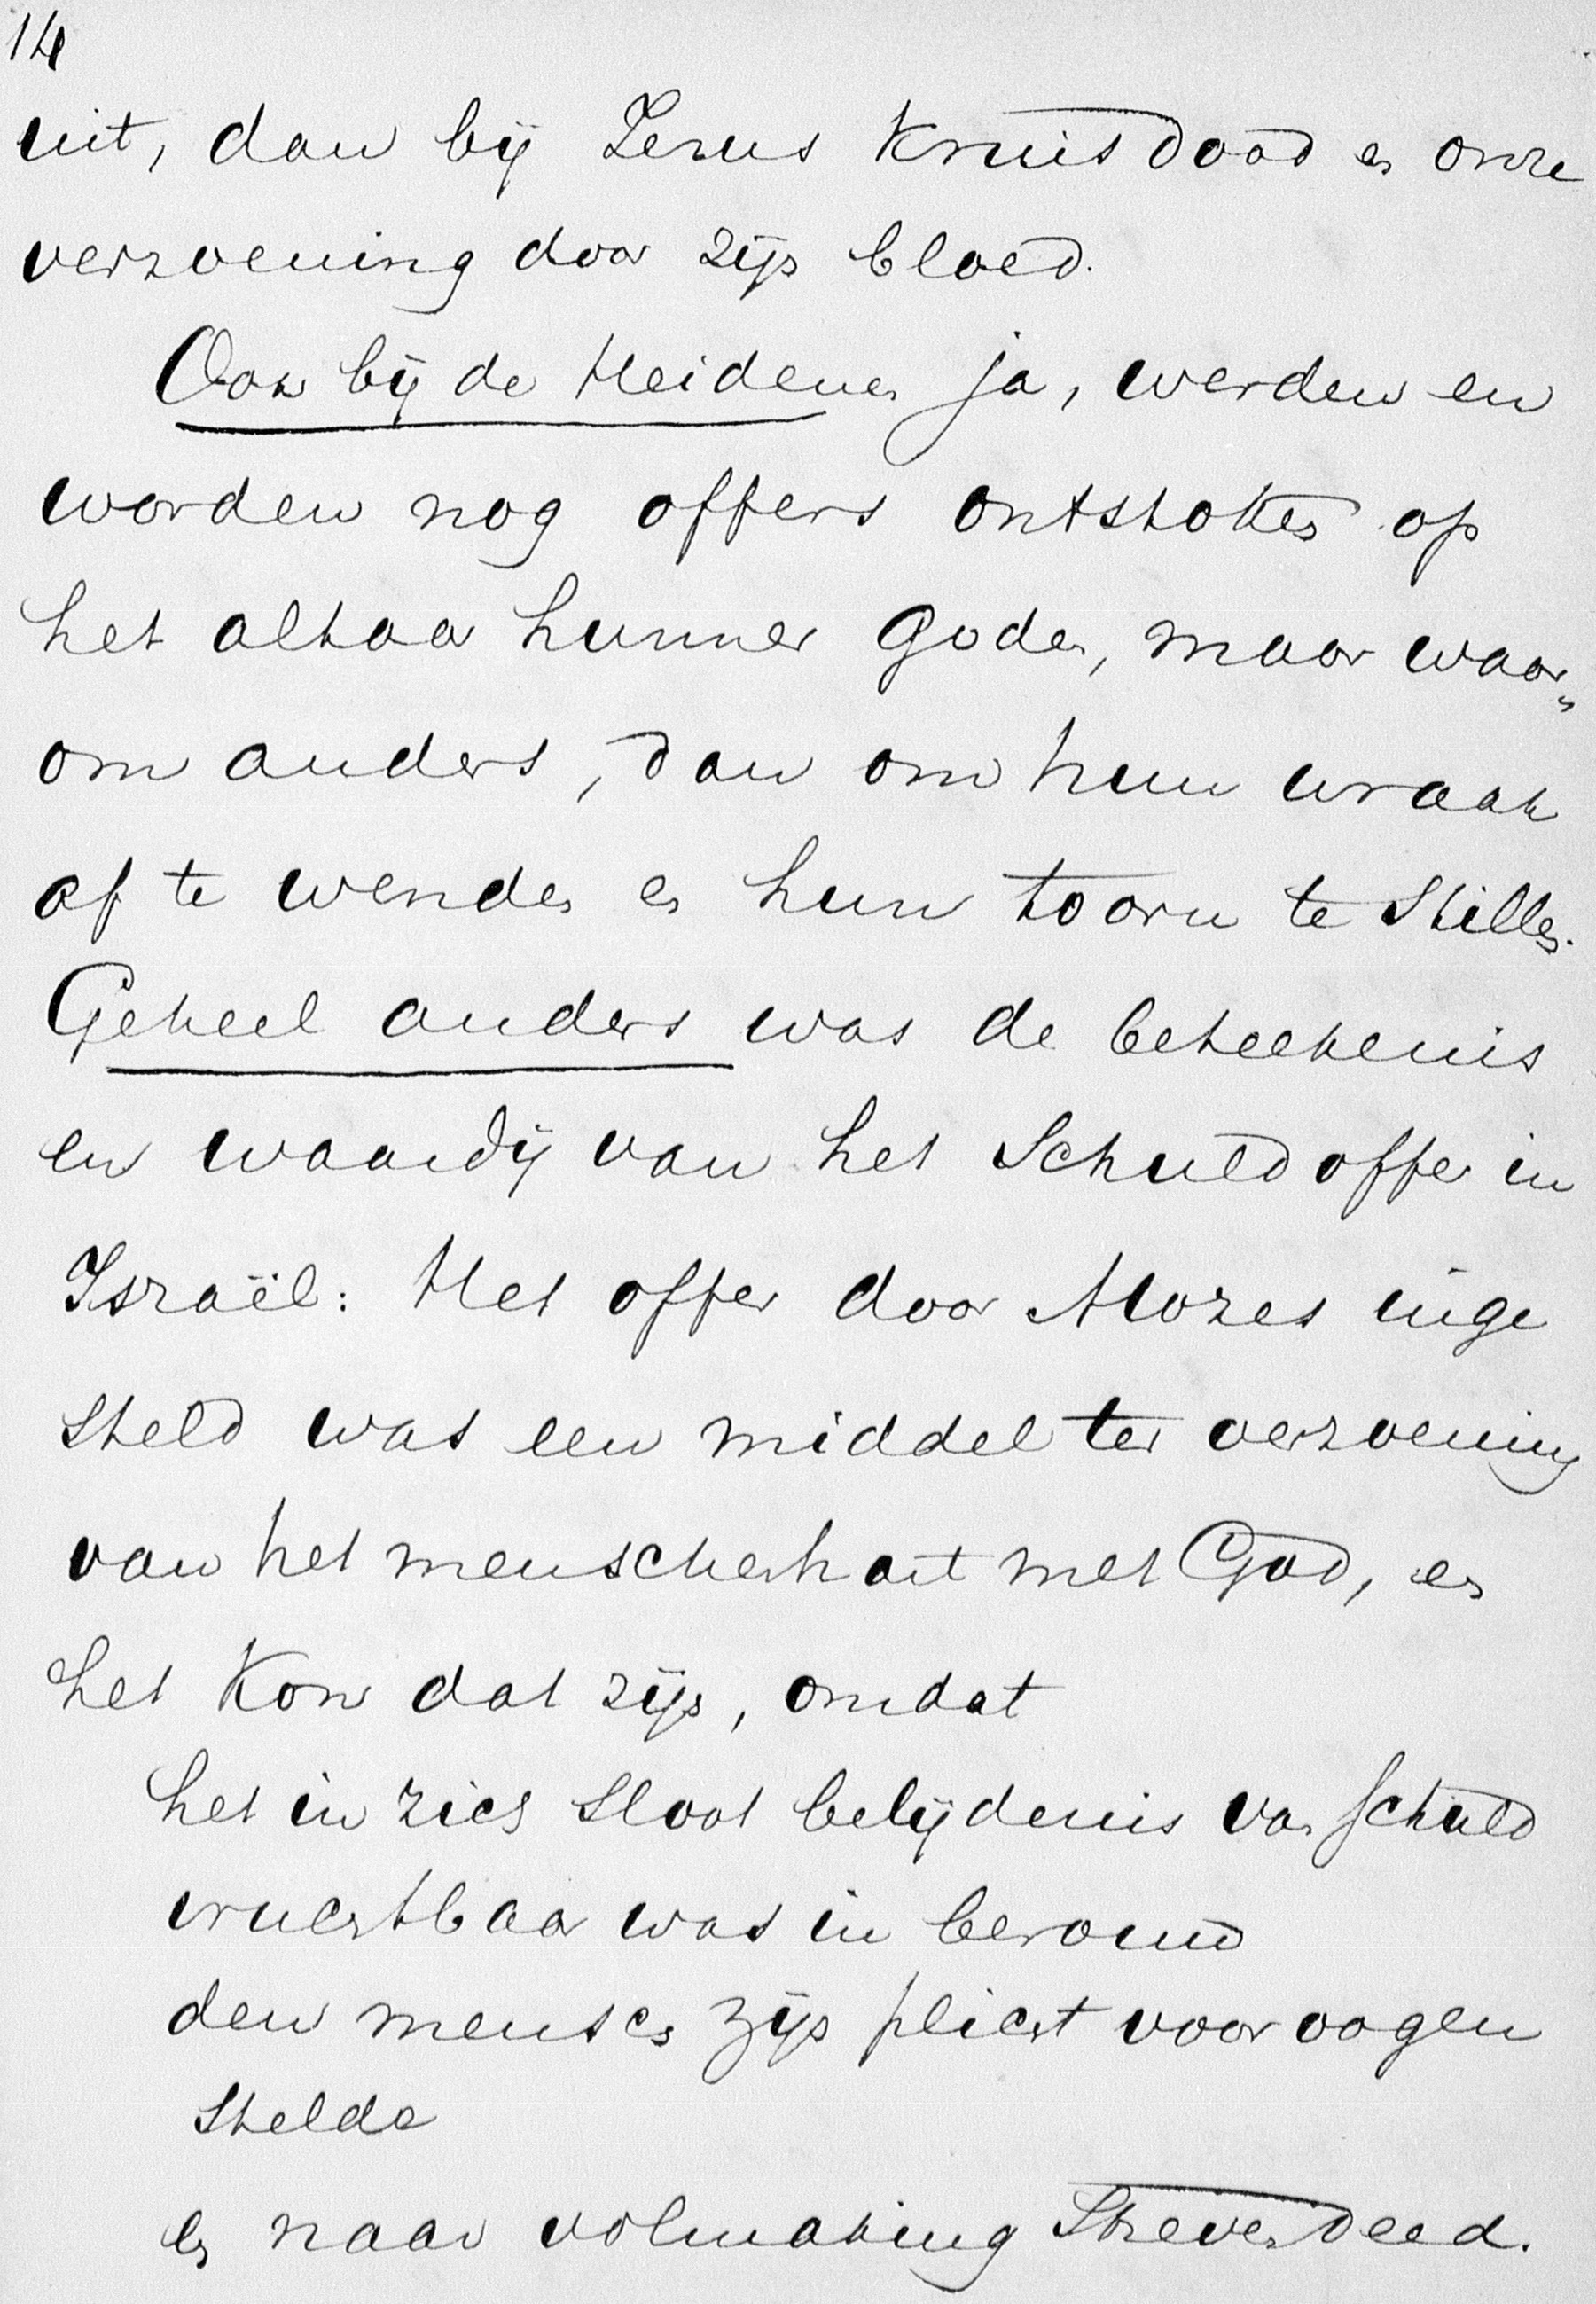 14
uit, dan bij Jezus Kruisdood en onze
verzoening door zijn bloed.
Ook bij de Heidenen ja, werden en
worden nog offers ontstoken op
het altaar hunner goden, maar waar„
om anders, dan om hun wraak
af te wenden en hun toorn te stillen.
Geheel anders was de beteekenis
en waardij van het Schuldoffer in
Israël: Het offer door Mozes inge
steld was een middel ter verzoening
van het menschenhart met God, en
het kon dat zijn, omdat
het in zich sloot belijdenis van schuld
vruchtbaar was in berouw
den mensch zijn plicht voor oogen
stelde
en naar volmaking streven deed.